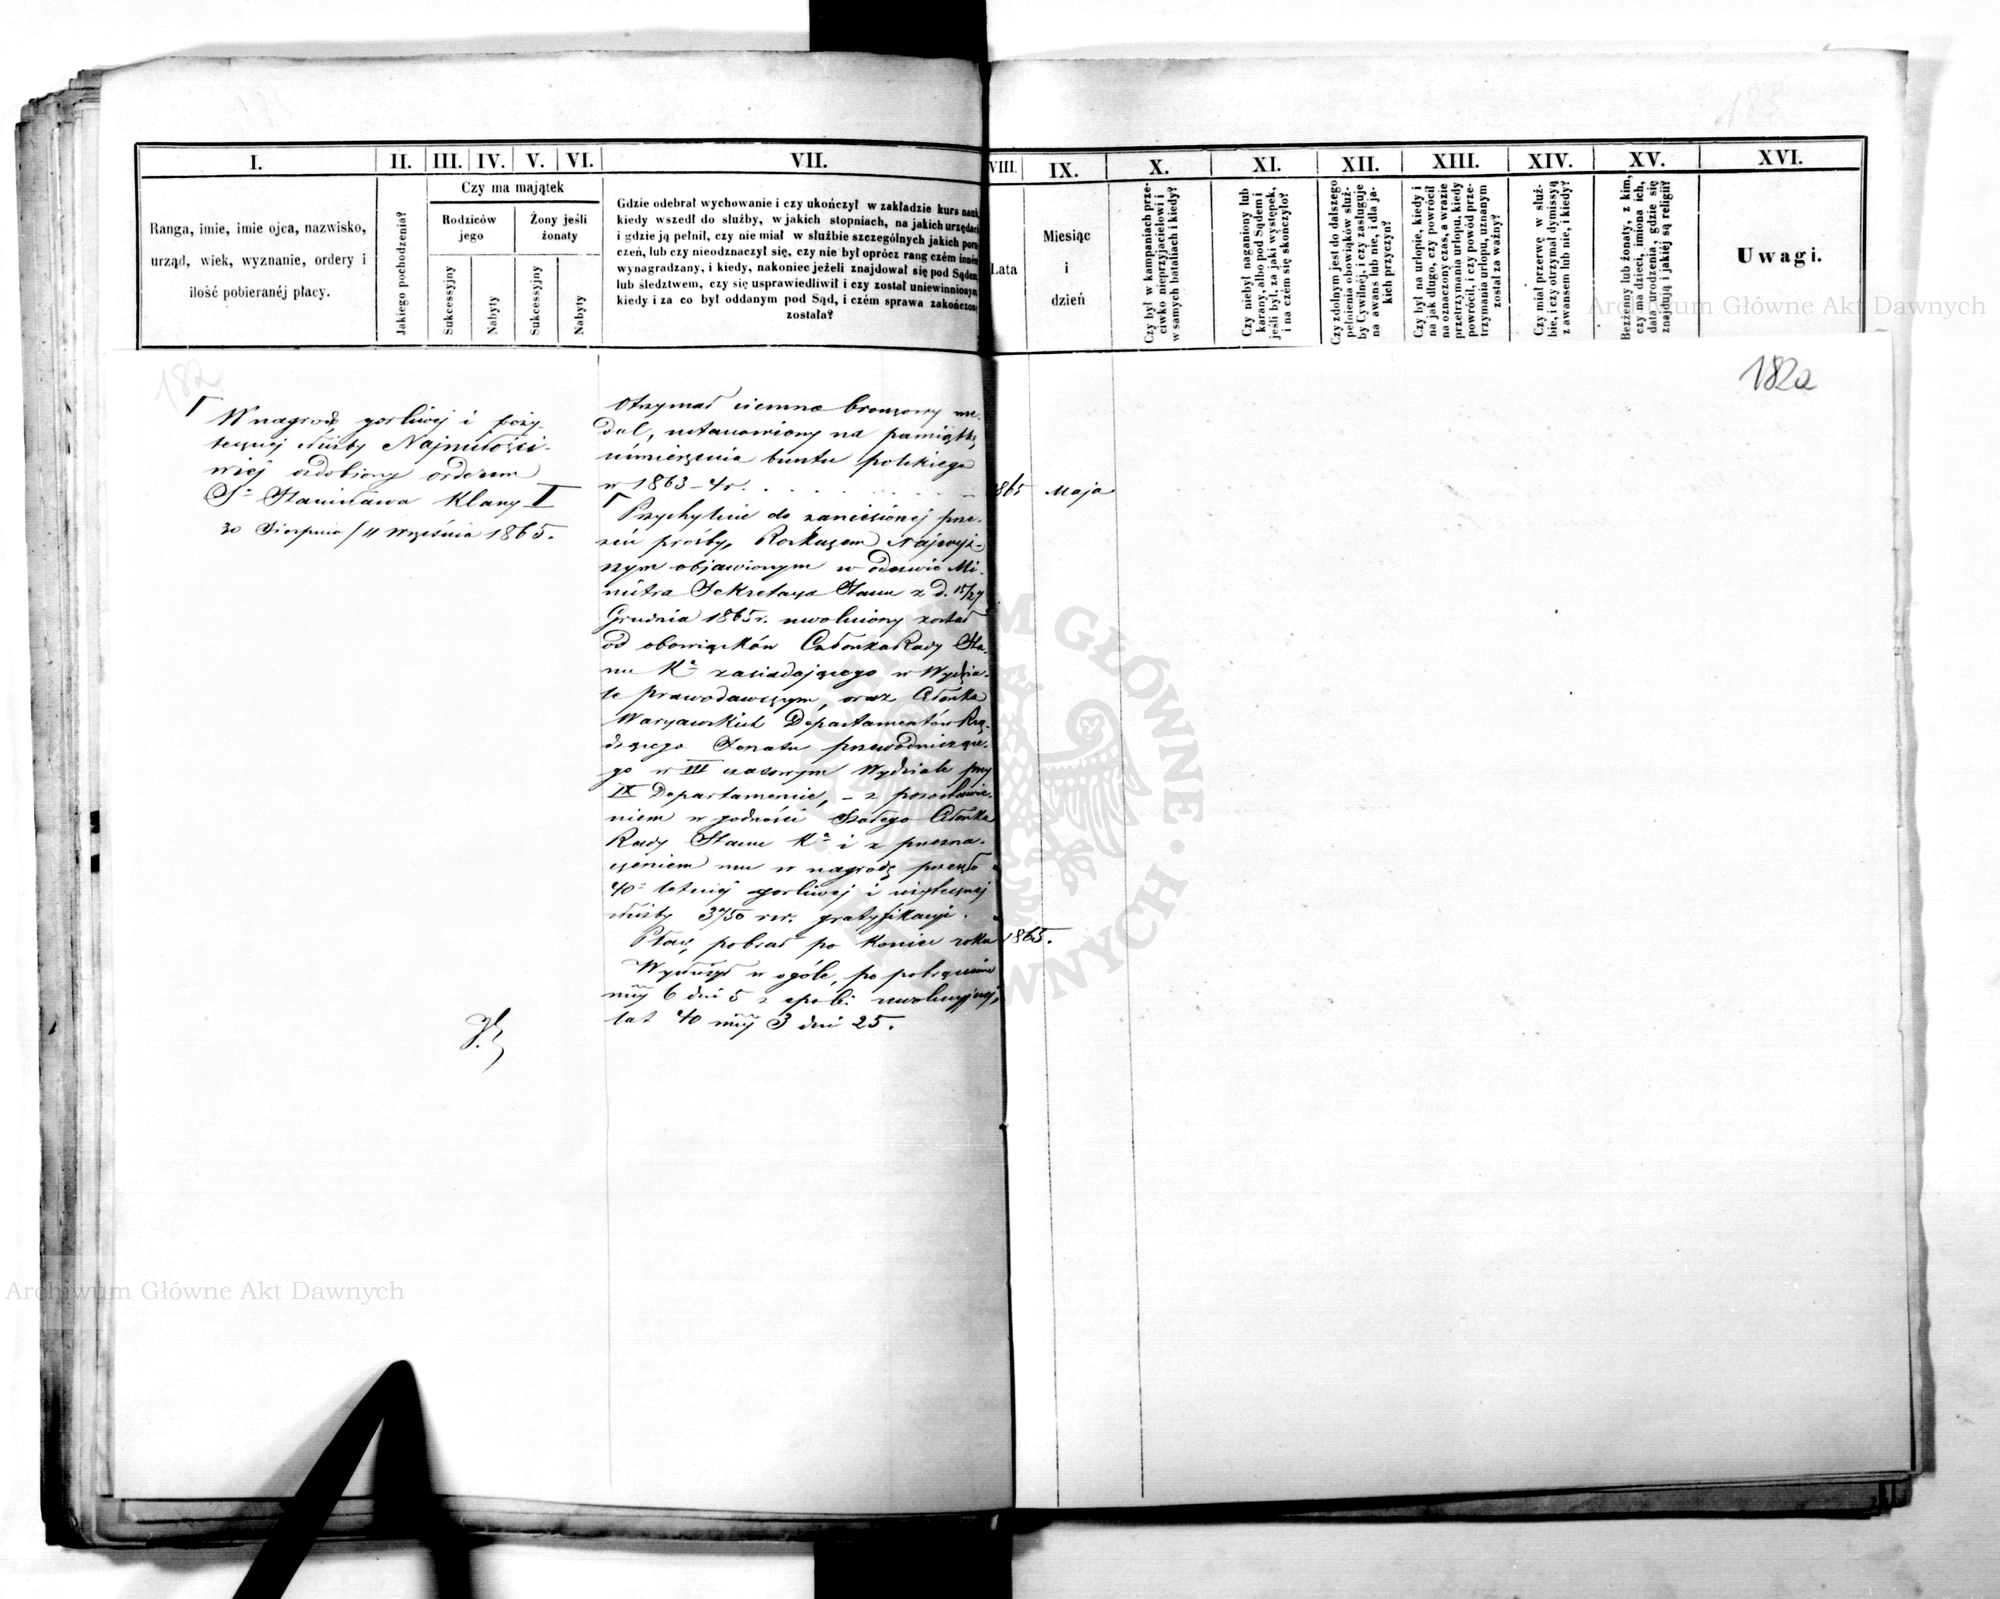 I. II. III. IV. V. VI. VII. VIII. IX. X. XI. XII. XIII. XIV. XV. XVI.
Ranga, imie, imie ojca, nazwisko,
urząd, wiek, wyznanie, ordery i
ilość pobieranéj płacy.
Jakiego pochodzenia?
Czy ma majątek
Rodziców
jego
Żony jeśli
żonaty
Sukcessyjny
Nabyty
Sukcessyjny
Nabyty
Gdzie odebrał wychowanie i czy ukończył w zakładzie kurs nauk,
kiedy wszedł do służby, w jakich stopniach, na jakich urzędach
i gdzie ją pełnił, czy nie miał w służbie szczególnych jakich poru
czeń, lub czy nieodznaczył się, czy nie był oprócz rang czém inném
wynagradzany, i kiedy, nakoniec jeżeli znajdował się pod Sądem,
lub śledztwem, czy się usprawiedliwił i czy został uniewinnionym,
kiedy i za co był oddanym pod Sąd, i czém sprawa zakończoną
została?
Lata
Miesiąc
i
dzień
Czy był w kampaniach prze-
ciwko nieprzyjacielowi i
w samych bataliach i kiedy?
Czy niebył naganiony lub
karany, albo pod Sądem i
jeśli był, za jaki występek,
i na czem się skończyło?
Czy zdolnym jest do dalszego
pełnienia obowiąków służ-
by Cywilnéj, i czy zasługuje
na awans lub nie, i dla ja-
kich przyczyn?
Czy był na urlopie, kiedy i
na jak długo, czy powrócił
na oznaczony czas, a w razie
przetrzymania urlopu, kiedy
powrócił, i czy powód prze-
trzymania urlopu, uznanym
został za ważny?
Czy miał przerwę w służ-
bie, i czy otrzymał dymissyą
z awansem lub nie, i kiedy?
Bezżenny lub żonaty, z kim,
czy ma dzieci, imiona ich,
data urodzenia, gdzie się
znajdują i jakiéj są religii?
Uwagi.
Archiwum Główne Akt Dawnych
182
182a
W nagrodę gorliwej i poży-
tecznej służby Najmiłości-
wiej ozdobiony orderem
Sgo Stanisława Klassy I
30 Sierpnia / 11 Września 1865.
Otrzymał ciemno bronzowy me-
dal, ustanowiony na pamiątkę
uśmierzenia buntu polskiego
w 1863–4 r. 1865 Maja
Przychylnie do zaniesionej prze-
zeń prośby, Rozkazem Najwyż-
szym objawionym w odezwie Mi-
nistra Sekretarza Stanu z d. 15/27
Grudnia 1865 r. uwolniony został
od obowiązków Członka Rady Sta-
nu Ka zasiadającego w Wydzia-
le prawodawczym, oraz Członka
Warszawskich Departamentów Rzą-
dzącego Senatu przewodniczące-
go w III czasowym Wydziale przy
IX Departamencie, – z pozostawie-
niem w godności Stałego Członka
Rady Stanu Ka i z przezna-
czeniem mu w nagrodę przeszło
40-letniej gorliwej i użytecznej
służby 3750 rsr. gratyfikacyi.
Płacę pobrał po koniec roku 1865.
Wysłużył w ogóle, po potrąceniu
mcy 6 dni 5 z epoki rewolucyjnej,
lat 40 mcy 3 dni 25.
ARCHIWUM GŁÓWNE AKT DAWNYCH
Archiwum Główne Akt Dawnych